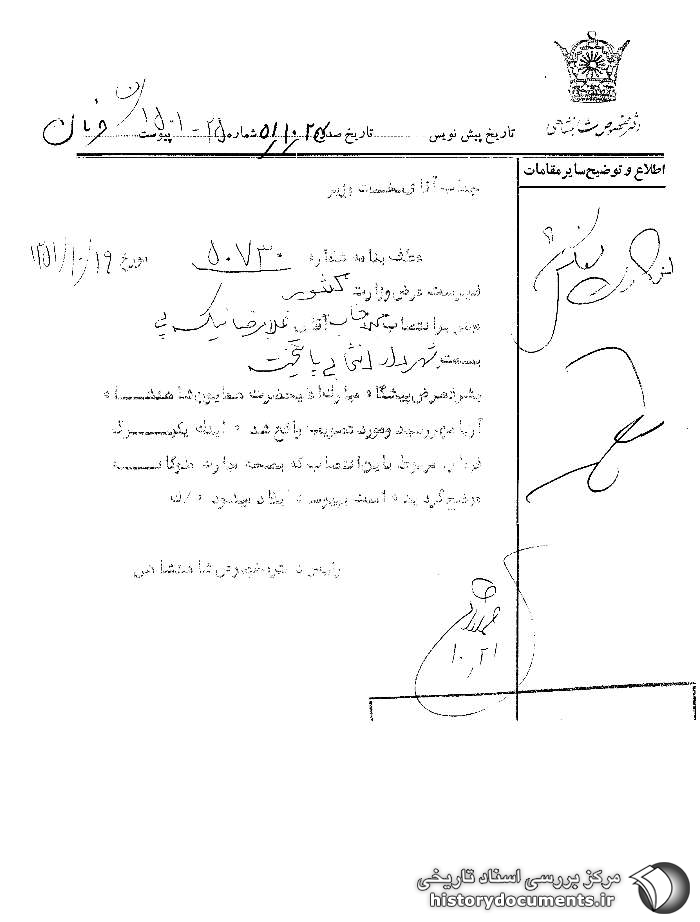 دفتر مخصوص شاهنشاهی
تاریخ پیش نویس تاریخ صدور ۵۱/۱۰/۲۵ شماره ۲۵-۱۵۰۱ پیوست فرمان
اطلاع و توضیح سایر مقامات
جناب آقای نخست وزیر
عطف بنامه شماره ۵۰۷۳۰ مورخ ۱۳۵۱/۱۰/۱۹
فهرست عرض وزارت کشور
مبنی بر انتصاب جناب آقای غلامرضا نیک پی
بسمت شهردار انتخابی پایتخت
بشرفعرض پیشگاه مبارک اعلیحضرت همایون شاهنشاه
آریامهر رسید و مورد تصویب واقع شد اینک یکبرگ
فرمان مربوط باین انتصاب که بصحه مبارک ملوکانه
موشح گردیده است بپیوست ایفاد میشود
رئیس دفتر مخصوص شاهنشاهی
۱۰٫۲۱
مرکز بررسی اسناد تاریخی
historydocuments.ir